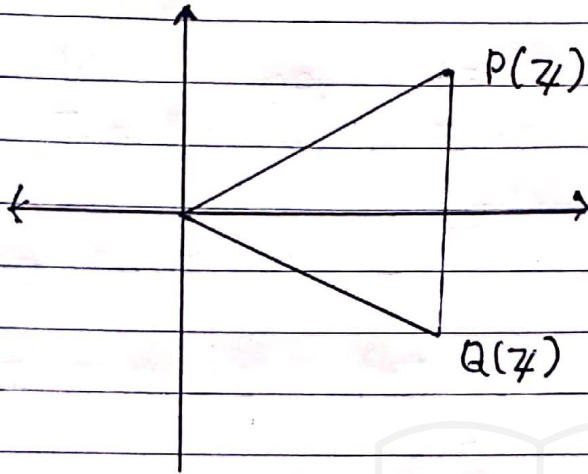 P(z)
Q(z)